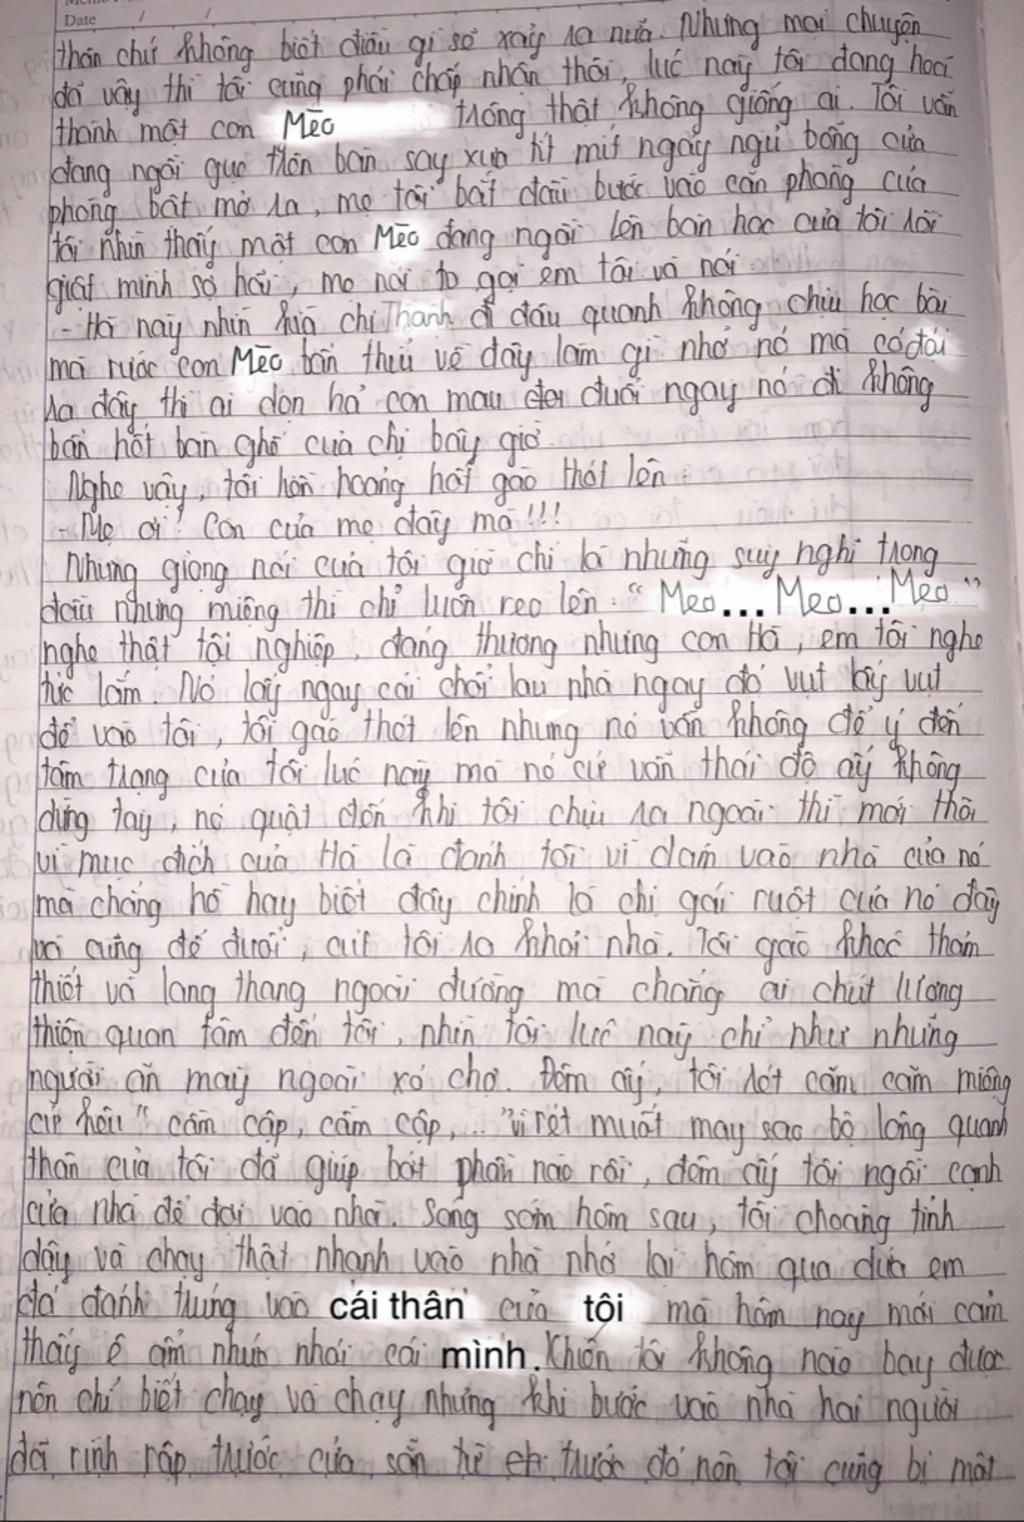 Date / /
thần chứ không biết điều gì sẽ xảy ra nữa. Nhưng mọi chuyện
đã vậy thì tôi cũng phải chấp nhận thôi, lúc này tôi đang hoá
thành một con Mèo trông thật không giống ai. Tôi vẫn
đang ngồi gục trên bàn say xưa tít mít ngáy ngủ bỗng cửa
phòng bật mở ra, mẹ tôi bắt đầu bước vào căn phòng của
tôi nhìn thấy một con Mèo đang ngồi lên bàn học của tôi rồi
giật mình sợ hãi, mẹ nói to gọi em tôi và nói
- Hà này nhìn kìa chị Thanh đi đâu quanh không chịu học bài
mà rước con Mèo bẩn thỉu về đây làm gì nhở nó mà có đái
ra đây thì ai dọn hả con mau đuổi ngay nó đi không
bẩn hết bàn ghế của chị bây giờ
Nghe vậy, tôi hồn hoảng hốt gào thét lên:
- Mẹ ơi! Con của mẹ đây mà!!!
Nhưng giọng nói của tôi giờ chỉ là những suy nghĩ trong
đầu nhưng miệng thì chỉ luôn reo lên. “Meo... Meo... Meo”
nghe thật tội nghiệp, đáng thương nhưng con Hà, em tôi nghe
tức lắm. Nó lấy ngay cái chổi lau nhà ngay đó vụt lấy vụt
để vào tôi, tôi gào thét lên nhưng nó vẫn không để ý đến
tâm trạng của tôi lúc này mà nó cứ vẫn thái độ ấy không
dừng tay, nó quật đến khi tôi chịu ra ngoài thì mới thôi
vì mục đích của Hà là đánh tôi vì dám vào nhà của nó
mà chẳng hề hay biết đây chính là chị gái ruột của nó đây
và cũng để đuổi, cút tôi ra khỏi nhà. Tôi gào khóc thảm
thiết và lang thang ngoài đường mà chẳng ai chút lương
thiện quan tâm đến tôi, nhìn tôi lúc này chỉ như những
người ăn mày ngoài xó chợ. Đêm ấy, tôi rét cầm cầm miệng
cứ kêu “cầm cập, cầm cập,...” vì rét muốt may sao bộ lông quanh
thân của tôi đã giúp bớt phần nào rồi, đêm ấy tôi ngồi cạnh
cửa nhà để đợi vào nhà. Sáng sớm hôm sau, tôi choàng tỉnh
dậy và chạy thật nhanh vào nhà nhớ lại hôm qua đứa em
đã đánh trúng vào cái thân của tôi mà hôm nay mới cảm
thấy ê ẩm nhức nhói cái mình. Khiến tôi không nào bay được
nên chỉ biết chạy và chạy nhưng khi bước vào nhà hai người
đã rình rập trước cửa sẵn từ trước đó nên tôi cũng bị một